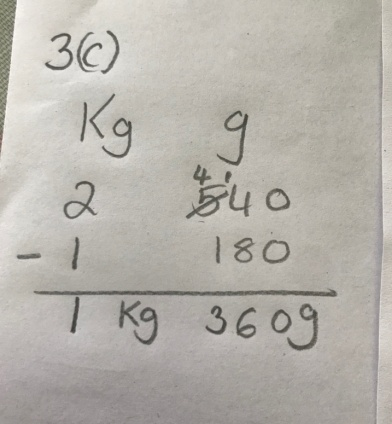 3(c)
Kg g
4 1
2 540
- 1 180
1 Kg 360g